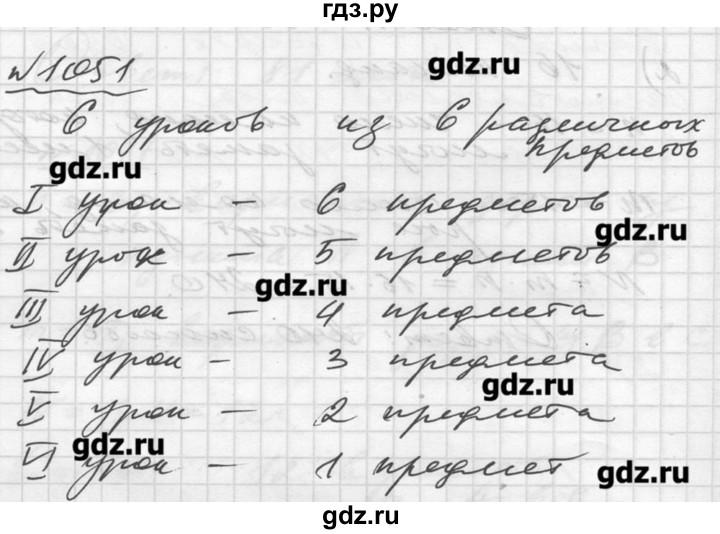 гдз.ру
№1051
gdz.ru
6 уроков из 6 различных
предметов
gdz.ru
I урок – 6 предметов
gdz.ru
II урок – 5 предметов
gdz.ru
III урок – 4 предмета
IV урок – 3 предмета
gdz.ru
V урок – 2 предмета
gdz.ru
VI урок – 1 предмет
gdz.ru
gdz.ru